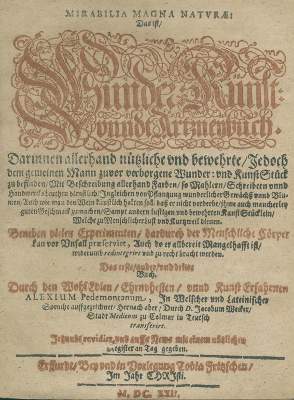 MIRABILIA MAGNA NATURÆ:
Das ist/
Wunder-Kunst-
vnnd Artzneybuch.
Darinnen allerhand nützliche vnd bewehrte/ Jedoch
dem gemeinen Mann zuvor verborgene Wunder- vnd KunstStück
zu befinden/ Mit Beschreibung allerhand Farben/ so Mahlern/ Schreibern vnnd
Handwercksleuthen dienstlich: Ingleichen von Pflantzung wunderlicher Gewächß vnnd Blu-
men/ Auch wie man den Wein Künstlich halten soll/ daß er nicht verderbe/ ihme auch mancherley
guten Geschmack zumachen/ Sampt andern lustigen vnd bewehrten KunstStücklein/
Welche zu Menschlicher Lust vnd Kurtzweil dienen.
Beneben vielen Experimenten/ dardurch der Menschliche Cörper
kan vor Vnfall præserviret, Auch do er allbereit Mangelhafft ist/
wiederumb redintegriret vnd zu recht bracht werden.
Das erste/ ander/ vnd dritte
Buch.
Durch den WohlEdlen/ Ehrnvhesten/ vnnd Kunst Erfahrnen
ALEXIUM Pedemontanum, In Welscher vnd Lateinischer
Sprach auffgezeichnet: Hernach aber/ Durch D. Jacobum Wecker/
Stadt Medicum zu Colmar in Teutsch
transferiret.
Register an Tag gegeben.
Erffurdt/ Bey vnd in Vorlegung Tobiæ Fritzschen/
Im Jahr CHRJsti.